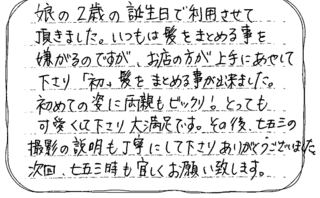 娘の2歳の誕生日で利用させて
頂きました。いつもは髪をまとめる事を
嫌がるのですが、お店の方が上手にあやして
下さり「初」髪をまとめる事が出来ました。
初めての姿に両親もビックリ！とっても
可愛くして下さり大満足です。その後、七五三の
撮影の説明も丁寧にして下さりありがとうございました。
次回、七五三時も宜しくお願い致します。